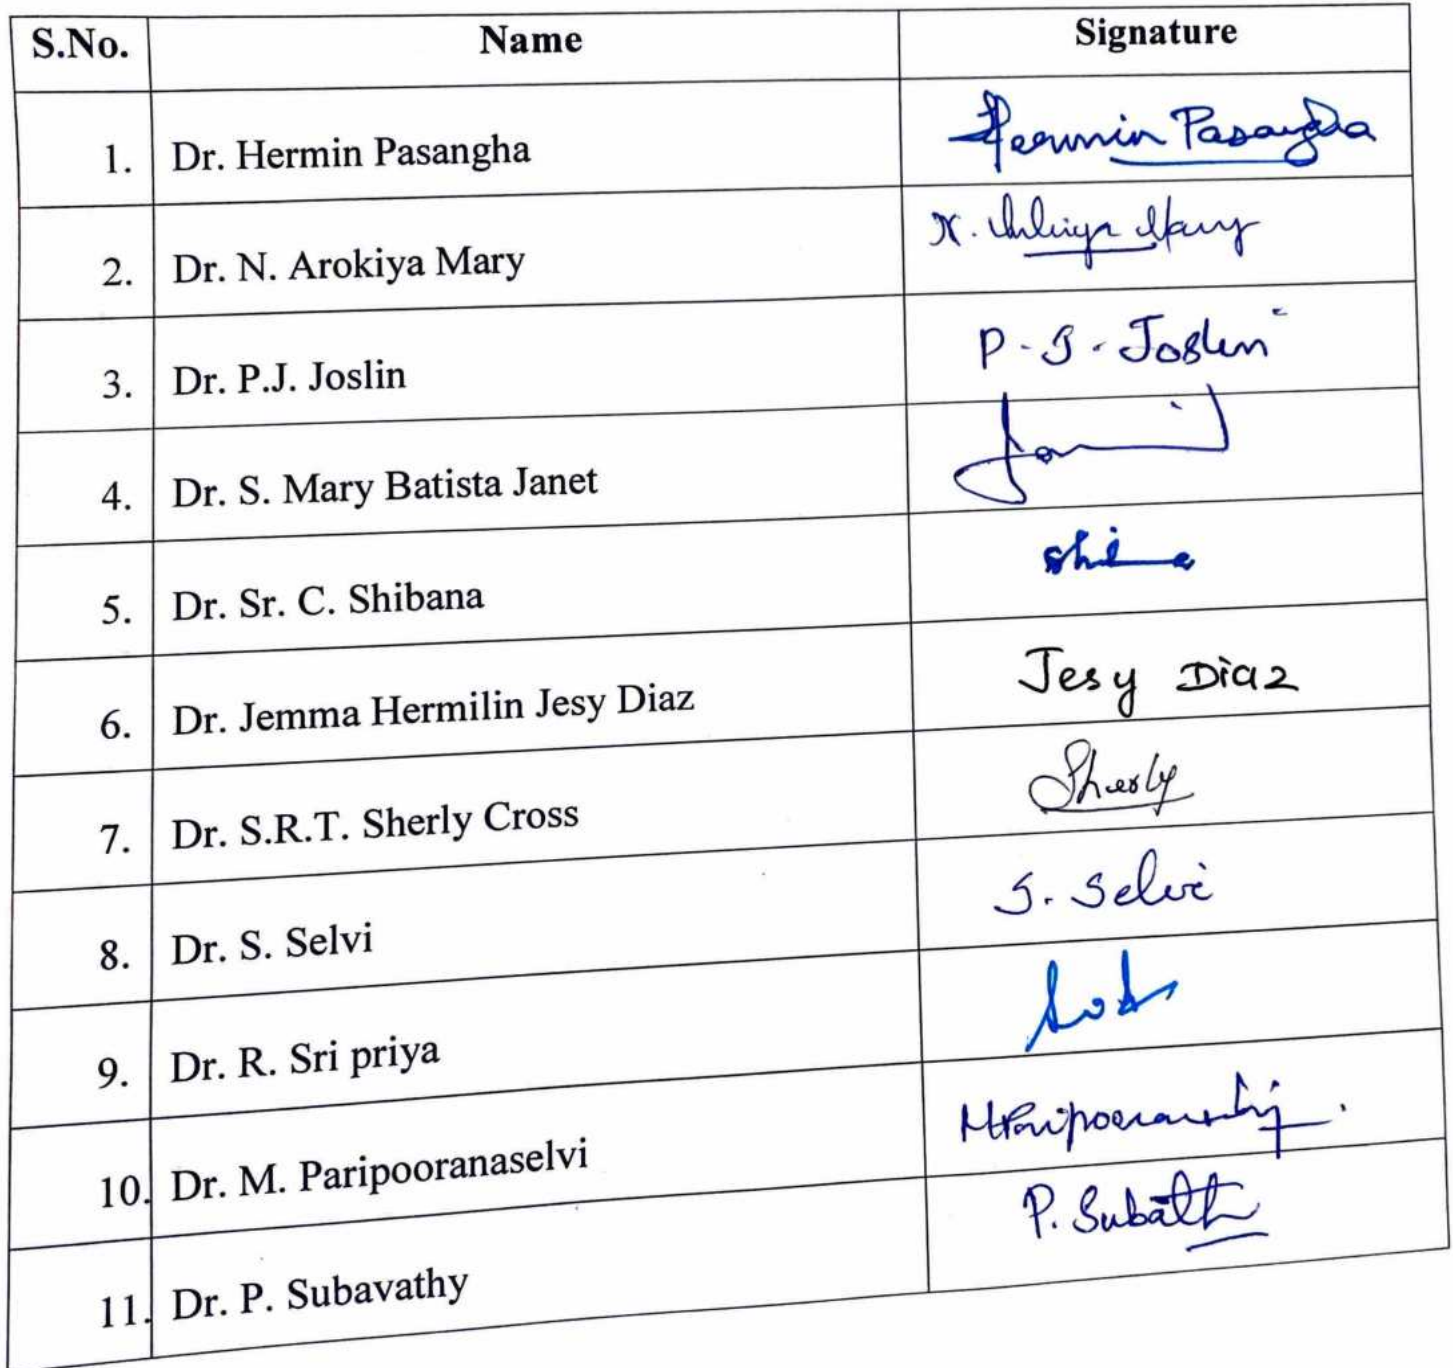 S.No. Name Signature
1. Dr. Hermin Pasangha Hermin Pasangha
2. Dr. N. Arokiya Mary N. Arokiya Mary
3. Dr. P.J. Joslin P. J. Joslin
4. Dr. S. Mary Batista Janet
5. Dr. Sr. C. Shibana
6. Dr. Jemma Hermilin Jesy Diaz Jesy Diaz
7. Dr. S.R.T. Sherly Cross Sherly
8. Dr. S. Selvi S. Selvi
9. Dr. R. Sri priya
10. Dr. M. Paripooranaselvi
11. Dr. P. Subavathy